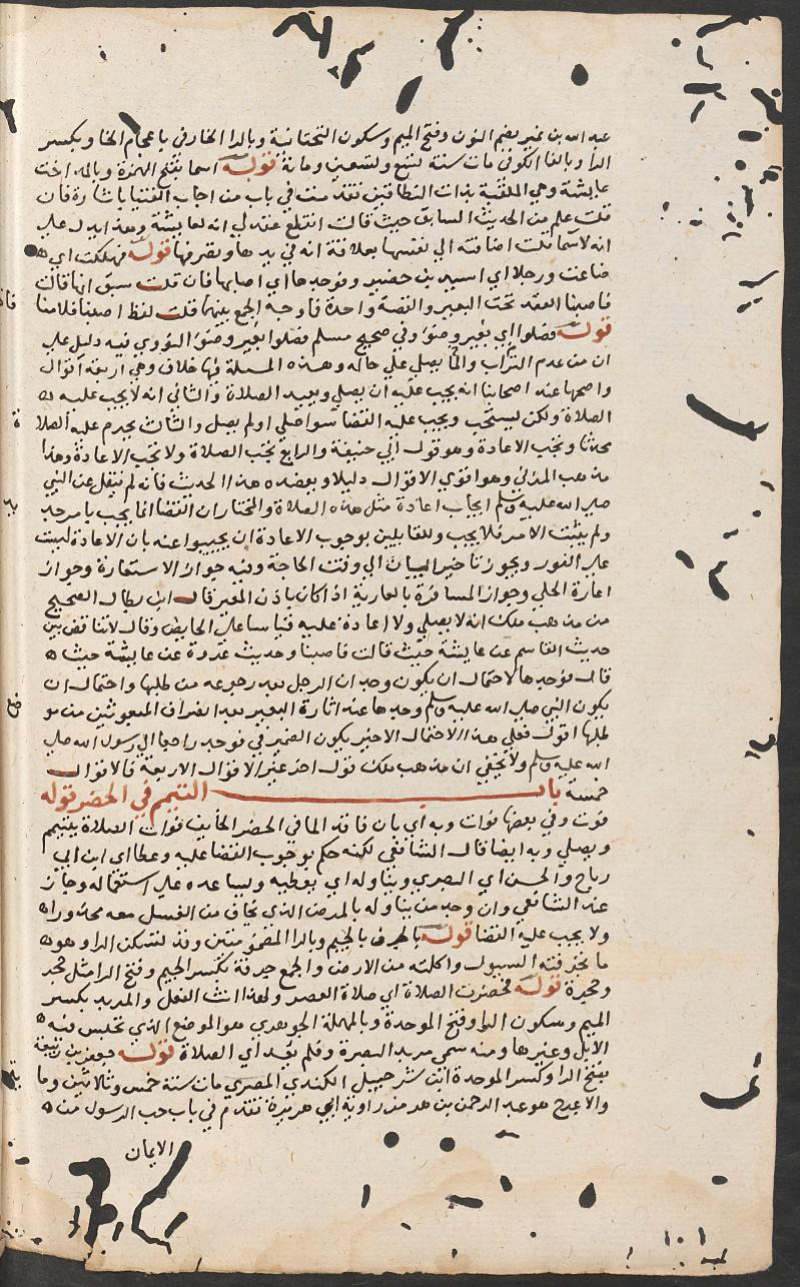 عبد الله بن نمير بضم النون وفتح الميم وسكون التحتانية وبالرا الخارفي باعجام الخا وبكسر
الرا وبالفا الكوفي مات سنة تسع وتسعين ومائة قوله اسما بفتح الهمزة وبالمد اخت
عايشة وهي الملقبة بذات النطاقين تقدمت في باب من اجاب الفتيا باشارة فان
قلت علم من الحديث السابق حيث قالت انقطع عقد لي انه لعايشة وهذا يدل علي
انه لاسما قلت اضافته الي نفسها بعلاقة انه في يدها وتصرفها قوله فهلكت اي
ضاعت ورجلا اي اسيد بن حضير وفوجدها اي اصابها فان قلت سبق انها قالت
فاصبنا العقد تحت البعير والقصة واحدة فما وجه الجمع بينهما قلت لفظ اصبنا فلامنا
قوله فصلوا اي بغير وضوء وفي صحيح مسلم فصلوا بغير وضوء النووي فيه دليل علي
ان من عدم التراب والما يصلي علي حاله وهذه المسلة فيها خلاف وهي اربعة اقوال
واصحها عند اصحابنا انه يجب عليه ان يصلي ويعيد الصلاة والثاني انه لا يجب عليه
الصلاة ولكن يستحب ويجب عليه القضا سوا صلي اولم يصل والثالث يحرم عليه الصلا
محدثا وتجب الاعادة وهو قول ابي حنيفة والرابع تجب الصلاة ولا تجب الاعادة وهذا
مذهب المزني وهو اقوي الاقوال دليلا ويعضده هذا الحديث فانه لم ينقل عن النبي
صلي الله عليه وسلم ايجاب اعادة مثل هذه الصلاة والمختار ان القضا انما يجب بامر جد
ولم يثبت الامر فلا يجب وللقايلين بوجوب الاعادة ان يجيبوا عنه بان الاعادة ليست
علي الفور ويجوز تاخير البيان الي وقت الحاجة وفيه جواز الاستعارة وجواز
اعارة الحلي وجواز المسافرة بالعارية اذا كان باذن المعير قال ابن بطال الصحيح
من مذهب ملك انه لا يصلي ولا اعادة عليه قياسا علي الحايض وقال لا تناقض بين
حديث القاسم عن عايشة حيث قالت فاصبنا وحديث عروة عن عايشة حيث
قال فوجدها لاحتمال ان يكون وجد ان الرجل بعد رجوعه من طلبها واحتمال ان
يكون النبي صلي الله عليه وسلم وجدها عند اثارة البعير بعد انصراف المبعوثين من مو
طلبها اقول فعلي هذا الاحتمال الاخير يكون الضمير في فوجد راجعا الي رسول الله صلي
الله عليه وسلم ولا يخفي ان مذهب ملك قول اخر غير الاقوال الاربعة فالاقوال
خمسة باب التيمم في الحضر قوله
فوت وفي بعضها فوات وبه اي بان فاقد الما في الحضر الخايف فوات الصلاة يتيمم
ويصلي وبه ايضا قال الشافعي لكنه حكم بوجوب القضا عليه وعطا اي ابن ابي
رباح والحسن اي البصري ويناوله اي يعطيه ويساعده علي استعماله وجاز
عند الشافعي وان وجد من يناوله بالمرض الذي يخاف من الغسل معه محذورا
ولا يجب عليه القضا قوله بالجرف بالجيم وبالرا المضمومتين وقد تسكن الرا وهو
ما تجرفته السيول واكلته من الارض والجمع جرفة بكسر الجيم وفتح الرا مثل جحر
وجحرة قوله فحضرت الصلاة اي صلاة العصر ولهذا انث الفعل والمربد بكسر
الميم وسكون الرا وفتح الموحدة وبالمهملة الجوهري هو الموضع الذي تحبس فيه
الابل وغيرها ومنه سمي مربد البصرة وفلم يعد اي الصلاة قوله جعفر بن ربيعة
بفتح الرا وكسر الموحدة ابن شرحبيل الكندي المصري مات سنة خمس وثلاثين وما
والاعرج هو عبد الرحمن بن هرمز راوية ابي هريرة تقدم في باب حب الرسول من
الايمان